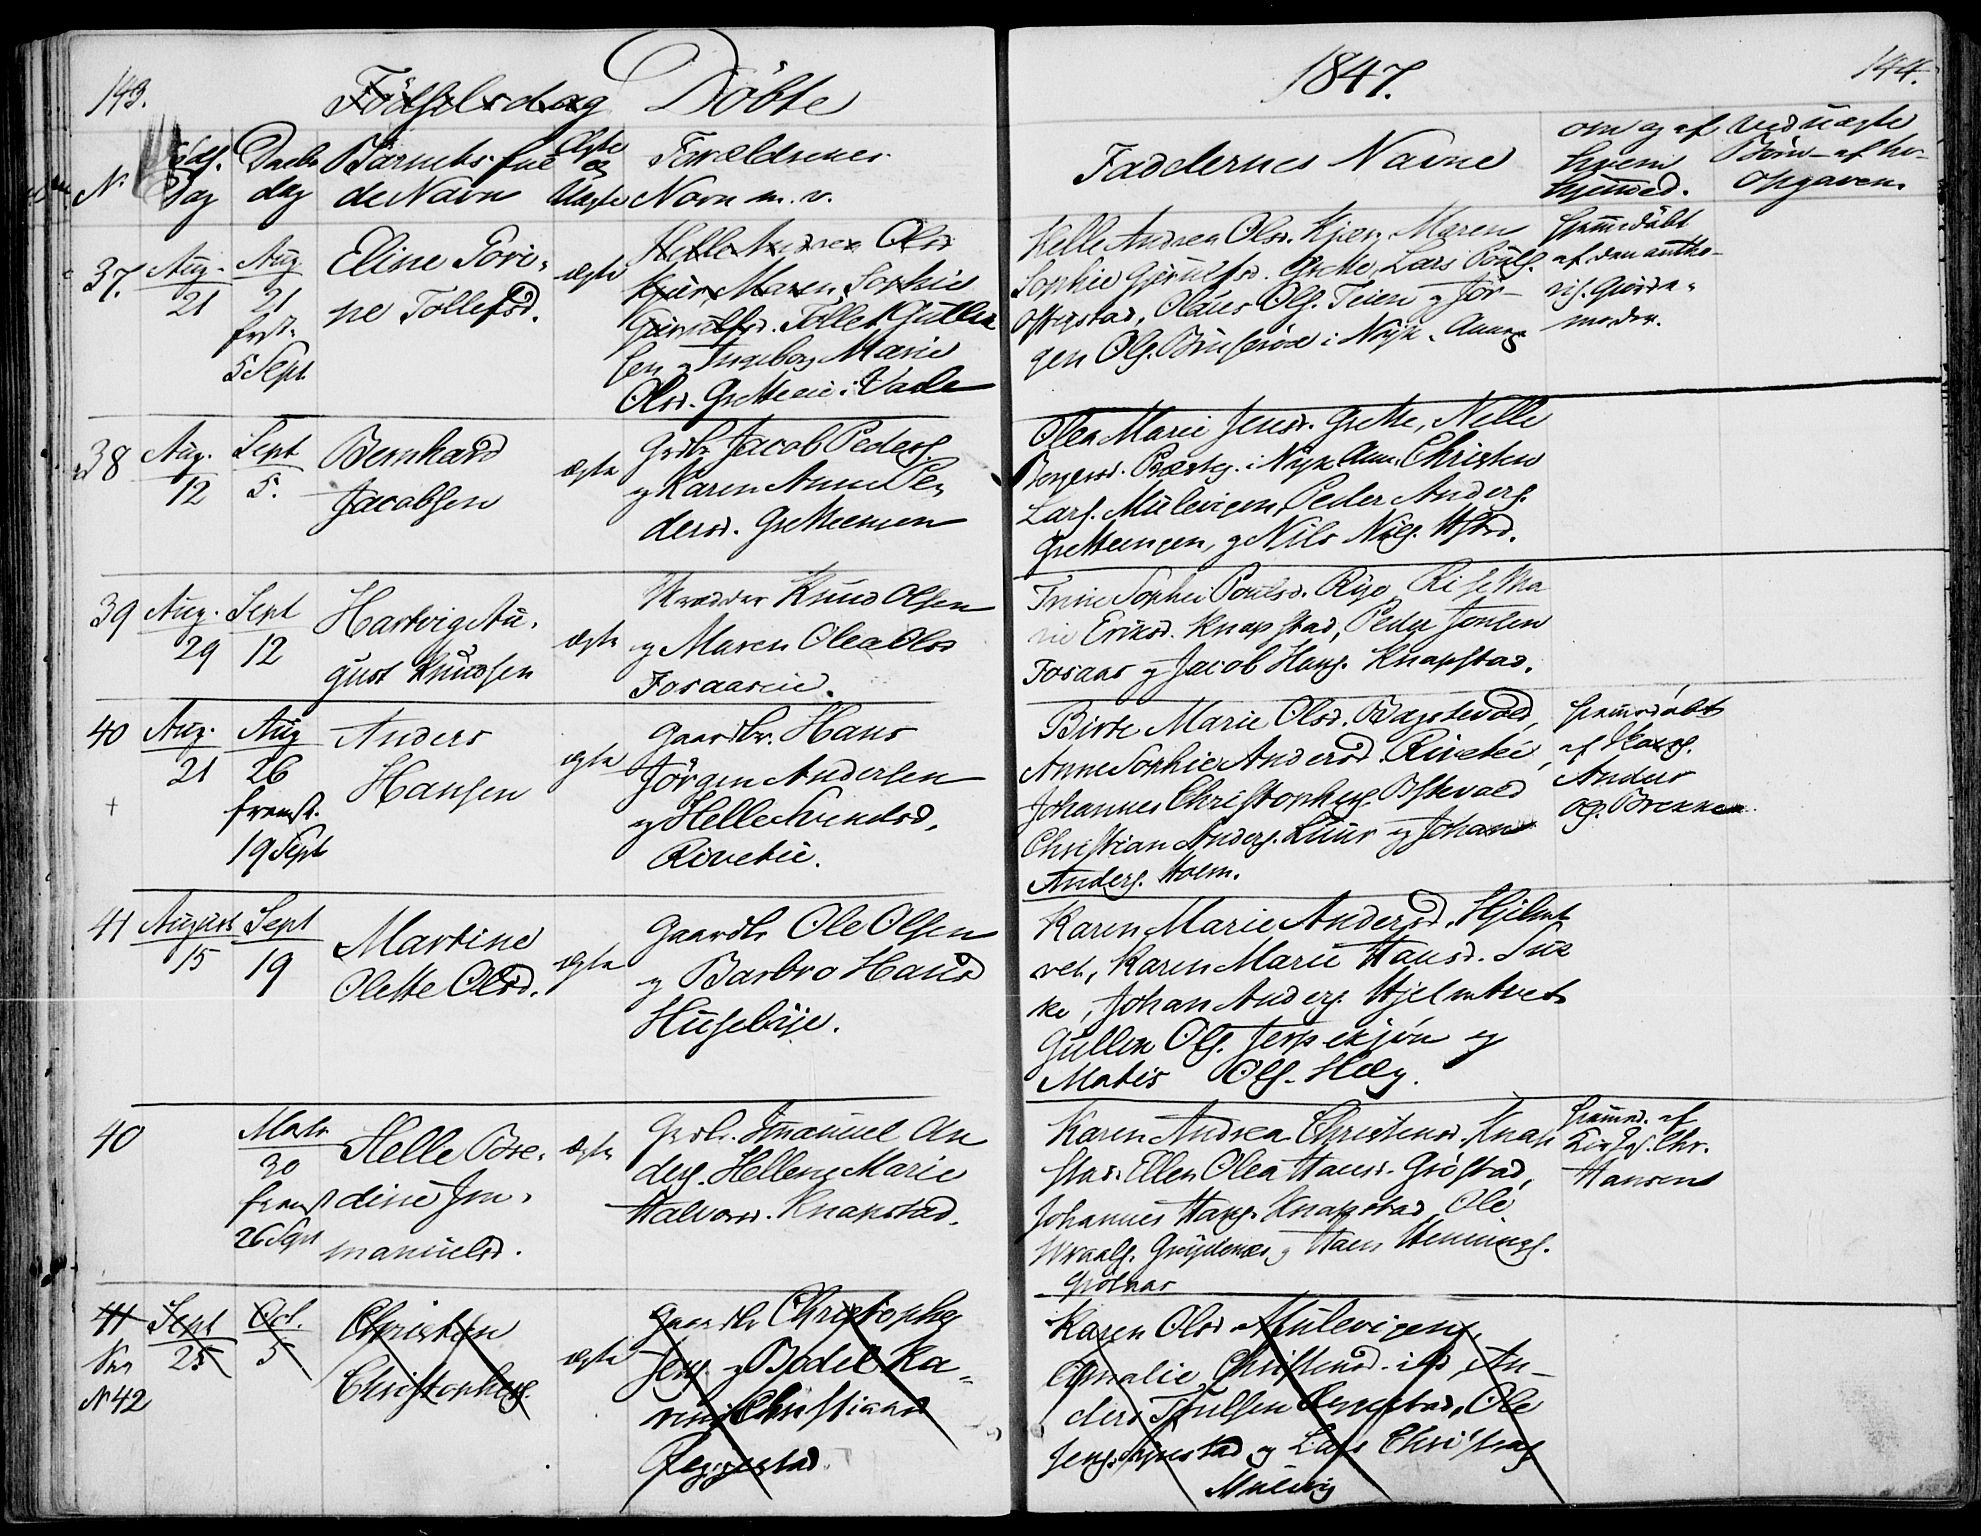 143.
Döbte
1847.
144.
No
Föds.
Dag
Daabs
dag
Barnets fue
de Navn
Ægte
og
Uægte
Forældrenes
Navn m. v.
Faddernes Navne
om og af
hvem
hjemmed.
ved uægte
Börn - af
Opgaven.
37. Aug. 21
Aug. 21
frst.
5 Sept
Eline Tori-
ne Tollefsd.
ægte
Helle Andrea Olsd
Kjær Maren Sophie
Gjerulfsd. Tollef Gutte
sen og Ingeborg Marie
Olsd. i Vade
Helle Andrea Olsd. Kjær, Maren
Sophie Gjerulfsd. Grette, Lars Pouls.
Olaus Ols. Teien og Jör-
gen Ols. i Nyk. Annex
hjemmedöbt
af den autho-
ris. Gjorde-
moder.
38 Aug. 12
Sept 5.
Bernhard
Jacobsen
ægte
Grdbr. Jacob Peders.
og Karen Anne Pe-
dersd. Gretteeneien
Olea Marie Jensd. Grette, Nelle
i Nyk. Ann. Christen
Lars. Mulevigen, Peder Anders.
og Nils Nils.
39 Aug. 29
Sept 12
Hartvig Au-
gust Knudsen
ægte
Skrædder Knud Olsen
og Maren Olea Olsd
Fosaaseie.
Trine Sophie Poulsd. Rise Ma
rie Eriksd. Knapstad, Peder
Fosaas og Jacob Hans. Knapstad.
40 Aug. 21
+
Aug 26
fremst.
19 Sept
Anders
Hansen
ægte
Gaardbr. Hans
Jörgen Andersen
og Helle Svendsd.
Riveteie.
Birte Marie Olsd.
Anne Sophie Andersd. Riveteie,
Johannes Christophers.
Christian Anders. Luur og Johan
Anders. Holm.
hjemmedöbt
af
Anders
Ols. Brekke
41 August 15
Sept 19
Martine
Olette Olsd.
ægte
Gaardbr Ole Olsen
og Barbro Hansd
Husebye.
Karen Marie Andersd. Hjelmt
vet, Karen Marie Hansd.
ke, Johan Anders. Hjelmtvet
Gullen Ols. og
Mathis Ols.
40
Marts 30
fremst
26 Sept
Helle Bre-
dine Im-
manuelsd.
ægte
Grdbr. Imanuel An
ders. Hellene Marie
Halvorsd. Knapstad.
Karen Andrea Christensd. Knap
stad, Ellen Olea Hansd. Gröstad,
Johannes Hans. Knapstad, Ole
og Hans Hennings.
hjemmed. af
Chr.
Hansen
41
No 42
Sept 25
Oct. 5
Christen
Christophers.
ægte
Gaardbr Christopher
Jens. og Bodel Ka-
rine Christiansd
Karen Olsd. Mulevigen,
Amalie Christensd. An-
ders Ole
Jens. og Lars Christens
Mulvig